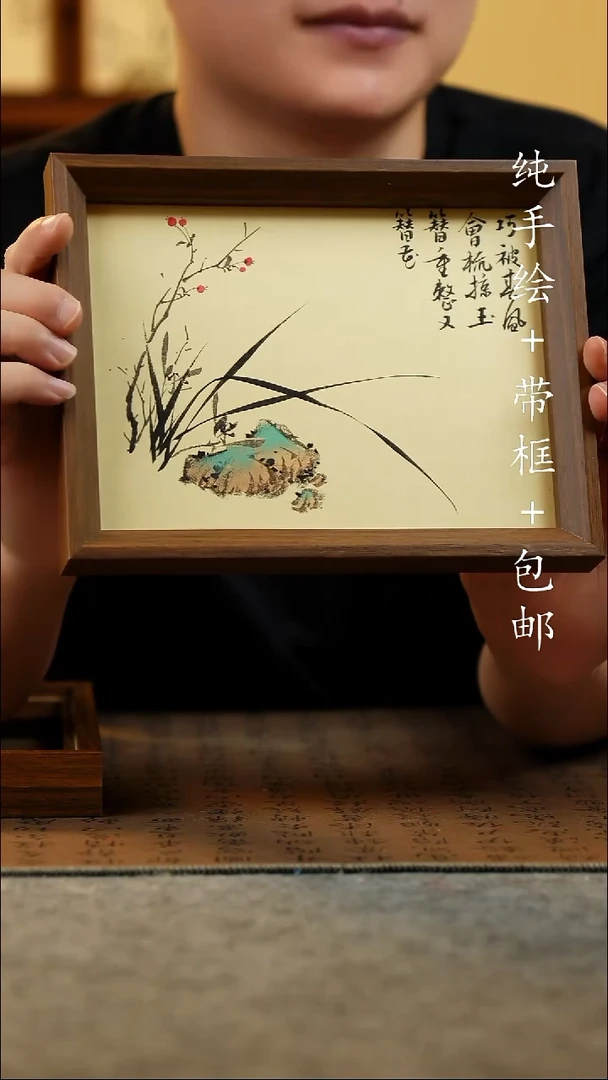 纯手绘+带框+包邮
巧被春風
會梳掠玉
簪重整又
簪花